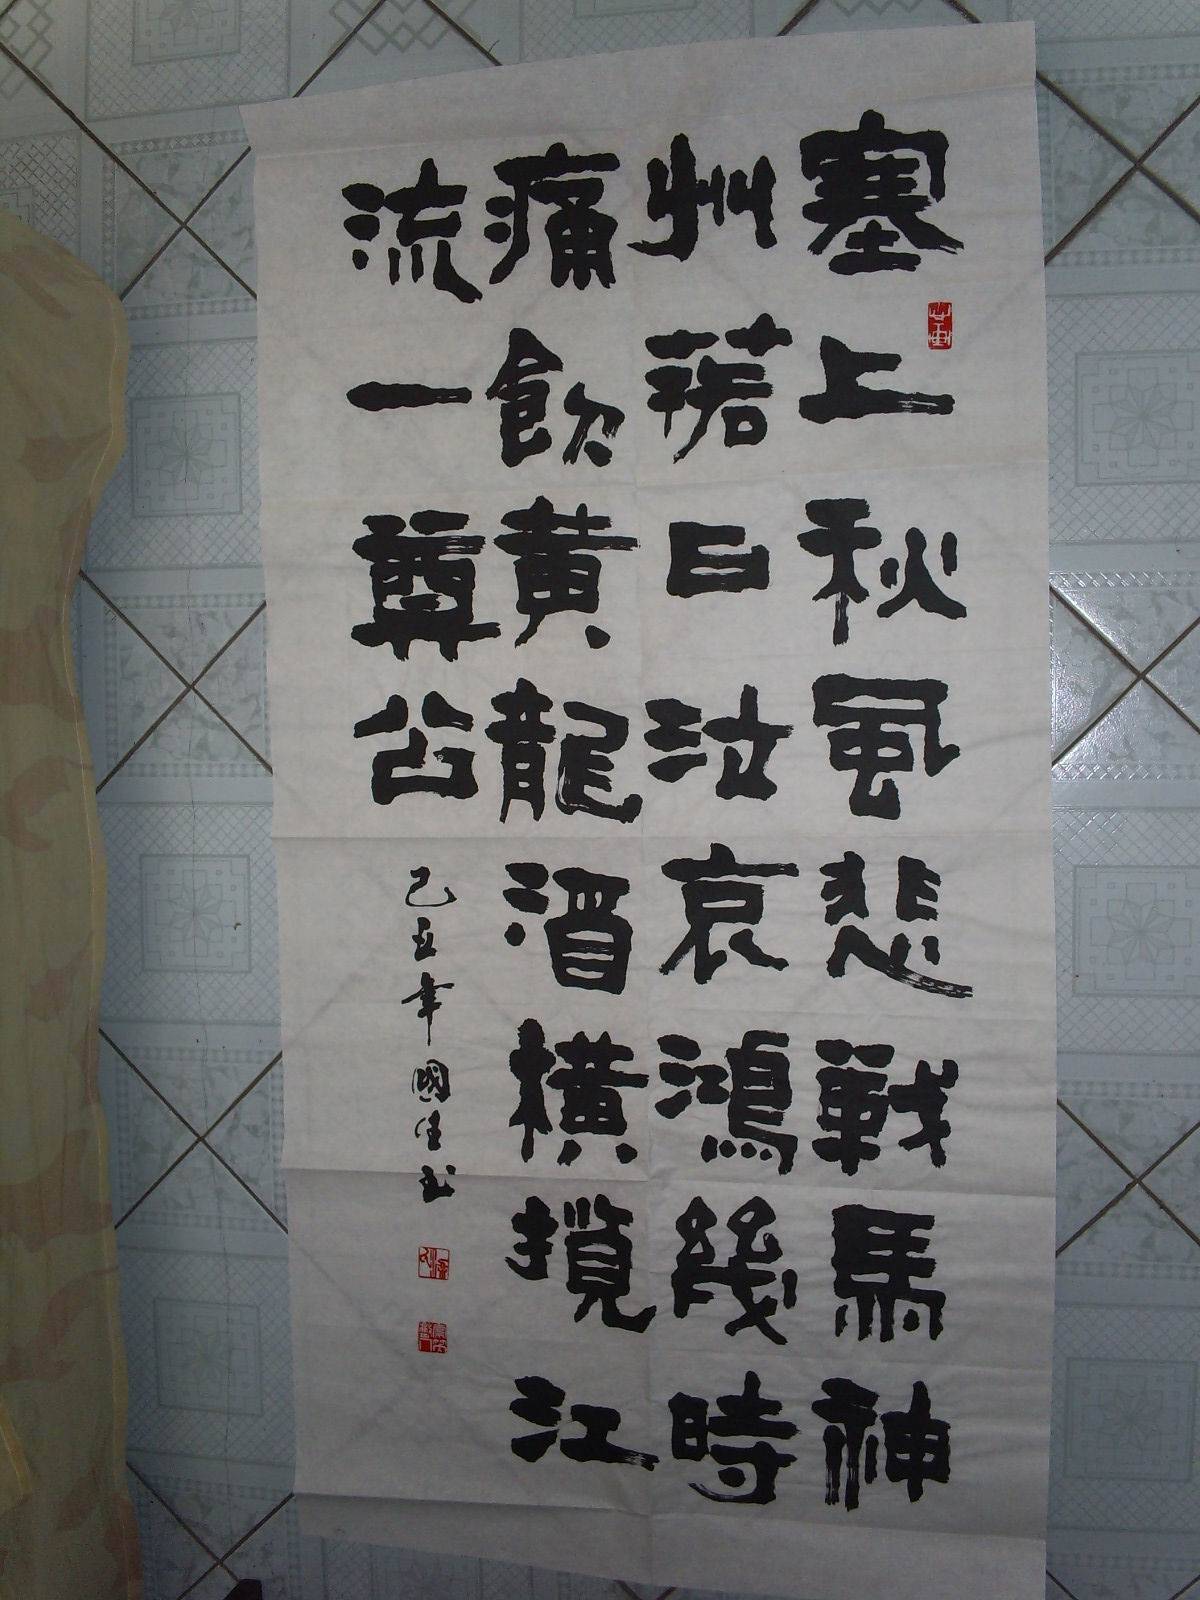 塞上秋風悲戰馬神
州落日泣哀鴻幾時
痛飲黃龍酒橫攬江
流一尊公
己丑年國生书